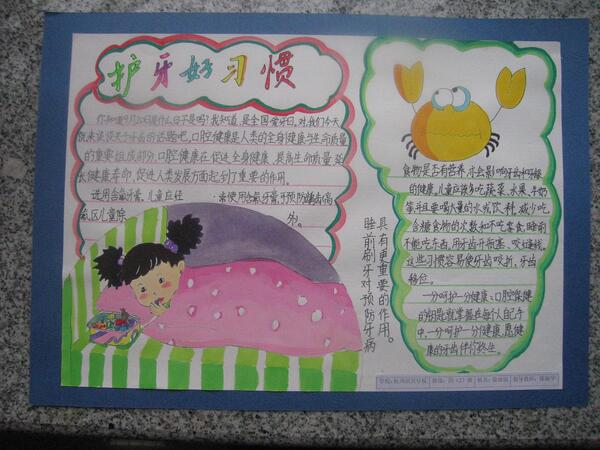 护牙好习惯
你知道9月20日是什么日子是吗？我知道，是全国爱牙日。对，我们今天
就来谈谈关于牙齿的话题吧。口腔健康是人类的全身健康与生命质量
的重要组成部分，口腔健康在促进全身健康、提高生命质量、延
长健康寿命，促进人类发展方面起到了重要的作用。
选用含氟牙膏，儿童应经
常使用含氟牙膏，于预防龋齿高
氟区儿童除
外。
睡前刷牙对预防牙病
具有更重要的作用。
食物是否有营养，亦会影响牙齿和牙龈
的健康，儿童应该多吃蔬菜、水果、牛奶
等并且要喝大量的水或饮料，减少吃
含糖食物的次数和不吃零食，睡前
不能吃东西，用牙齿开瓶盖、咬硬物，
这些习惯容易使牙齿咬折，牙齿
移位。
一分呵护一分健康，口腔保健
的钥匙就掌握在每个人自己手
中，一分呵护一分健康，愿健
康的牙齿伴你终生。